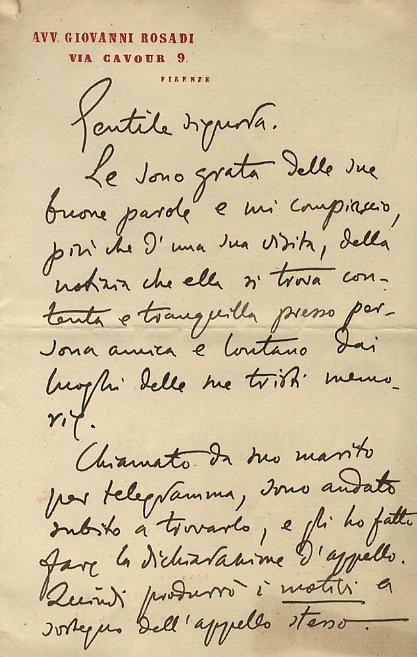 AVV. GIOVANNI ROSADI
VIA CAVOUR 9.
FIRENZE
Gentile signora.
Le sono grata delle sue
buone parole e mi compiaccio,
più che d'una sua visita, della
notizia che ella si trova con-
tenta e tranquilla presso per-
sona amica e lontano dai
luoghi delle sue tristi memo-
rie.
Chiamato da suo marito
per telegramma, sono andato
subito a trovarlo, e gli ho fatto
fare la dichiarazione d'appello.
Quindi produrrò i motivi a
sostegno dell'appello stesso.